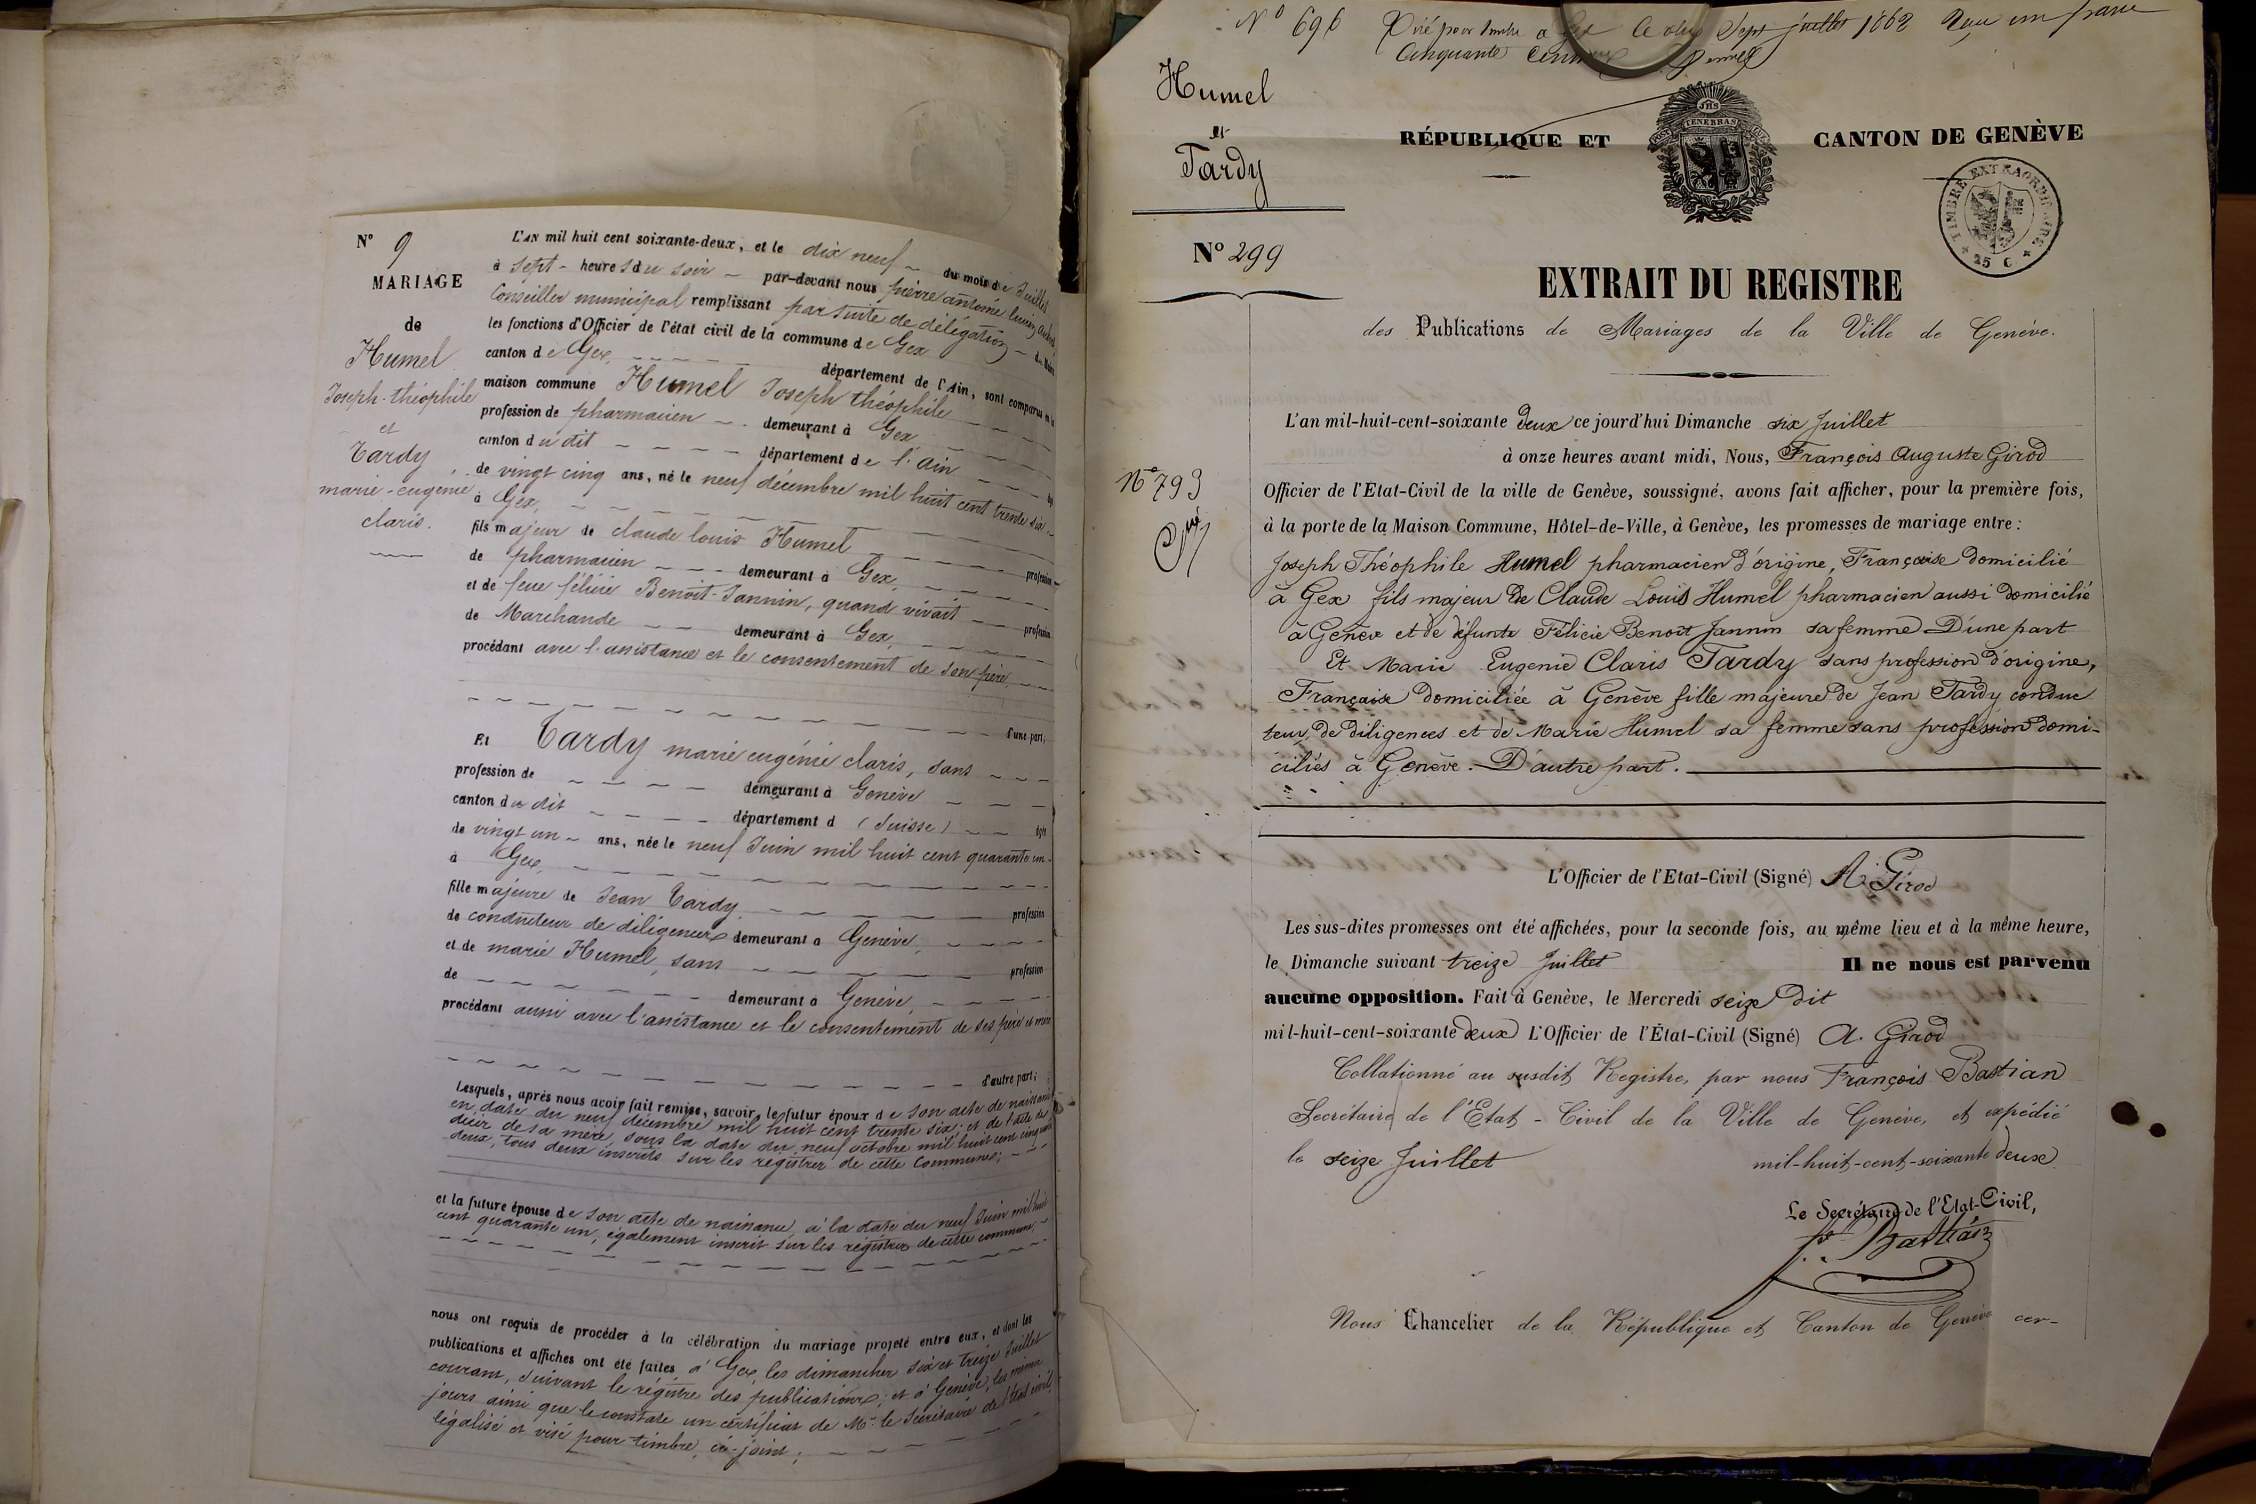 N° 9
MARIAGE
de
Humel
Joseph-théophile
et
Tardy
marie-eugénie
claris.
L'AN mil huit cent soixante-deux, et le dix neuf du mois de Juillet
à sept heures du soir par-devant nous pierre antoine lucien
Conseiller municipal remplissant par suite de délégation du Maire
les fonctions d'Officier de l'état civil de la commune de Gex
canton de Gex, département de l'Ain, sont comparus en la
maison commune Humel Joseph théophile
profession de pharmacien demeurant à Gex
canton du dit département de l'ain
de vingt cinq ans, né le neuf décembre mil huit cent trente six
à Gex,
fils majeur de claude louis Humel profession
de pharmacien demeurant à Gex,
et de feue félicie Benoit-Jannin, quand vivait profession
de Marchande demeurant à Gex,
procédant avec l'assistance et le consentement de son père,
d'une part;
Et Tardy marie eugénie claris, sans
profession de demeurant à Genève
canton du dit département d (Suisse) âgée
de vingt un ans, née le neuf Juin mil huit cent quarante un
à Gex,
fille majeure de Jean Tardy, profession
de conducteur de diligences demeurant à Genève,
et de marie Humel, sans profession
de demeurant à Genève,
procédant aussi avec l'assistance et le consentement de ses père et mère
d'autre part;
Lesquels, après nous avoir fait remise, savoir, le futur époux de son acte de naissance
en date du neuf décembre mil huit cent trente six; et de l'acte de
décès de sa mère, sous la date du neuf octobre mil huit cent cinquante
deux, tous deux inscrits sur les registres de cette Commune;
et la future épouse de son acte de naissance, à la date du neuf Juin mil huit
cent quarante un, également inscrit sur les registres de cette commune;
nous ont requis de procéder à la célébration du mariage projeté entre eux, et dont les
publications et affiches ont été faites à Gex, les dimanches six et treize Juillet
courant, suivant le régistre des publications; et à Genève, les mêmes
jours ainsi que le constate un certificat de Mr. le Secrétaire de l'état civil,
légalisé et visé pour timbre, ci-joint;
N° 696 Visé pour timbre a Gex Le dix Sept juillet 1862 Reçu un franc
Cinquante Centimes
Humel
et
Tardy
N° 299
N° 793
RÉPUBLIQUE ET CANTON DE GENÈVE
JHS
POST TENEBRAS LUX
TIMBRE EXTRAORDINAIRE
25 C.
EXTRAIT DU REGISTRE
des Publications de Mariages de la Ville de Genève.
L'an mil-huit-cent-soixante deux ce jourd'hui Dimanche six Juillet
à onze heures avant midi, Nous, François Auguste Girod
Officier de l'Etat-Civil de la ville de Genève, soussigné, avons fait afficher, pour la première fois,
à la porte de la Maison Commune, Hôtel-de-Ville, à Genève, les promesses de mariage entre:
Joseph Théophile Humel pharmacien d'origine, Française domicilié
à Gex fils majeur de Claude Louis Humel pharmacien aussi domicilié
à Genève et de défunte Félicie Benoit Jannin sa femme D'une part
Et Marie Eugenie Claris Tardy sans profession d'origine,
Française domiciliée à Genève fille majeure de Jean Tardy conduc
teur, de diligences et de Marie Humel sa femme sans profession domi-
ciliés à Genève. D'autre part.
L'Officier de l'Etat-Civil (Signé) A. Girod
Les sus-dites promesses ont été affichées, pour la seconde fois, au même lieu et à la même heure,
le Dimanche suivant treize Juillet Il ne nous est parvenu
aucune opposition. Fait à Genève, le Mercredi seize dit
mil-huit-cent-soixante deux L'Officier de l'État-Civil (Signé) A. Girod
Collationné au susdit Registre, par nous François Bastian
Secrétaire de l'Etat-Civil de la Ville de Genève, et expédié
le seize Juillet mil-huit-cent-soixante deux
Le Secrétaire de l'Etat-Civil,
Fs Bastian
Nous Chancelier de la République et Canton de Genève cer-